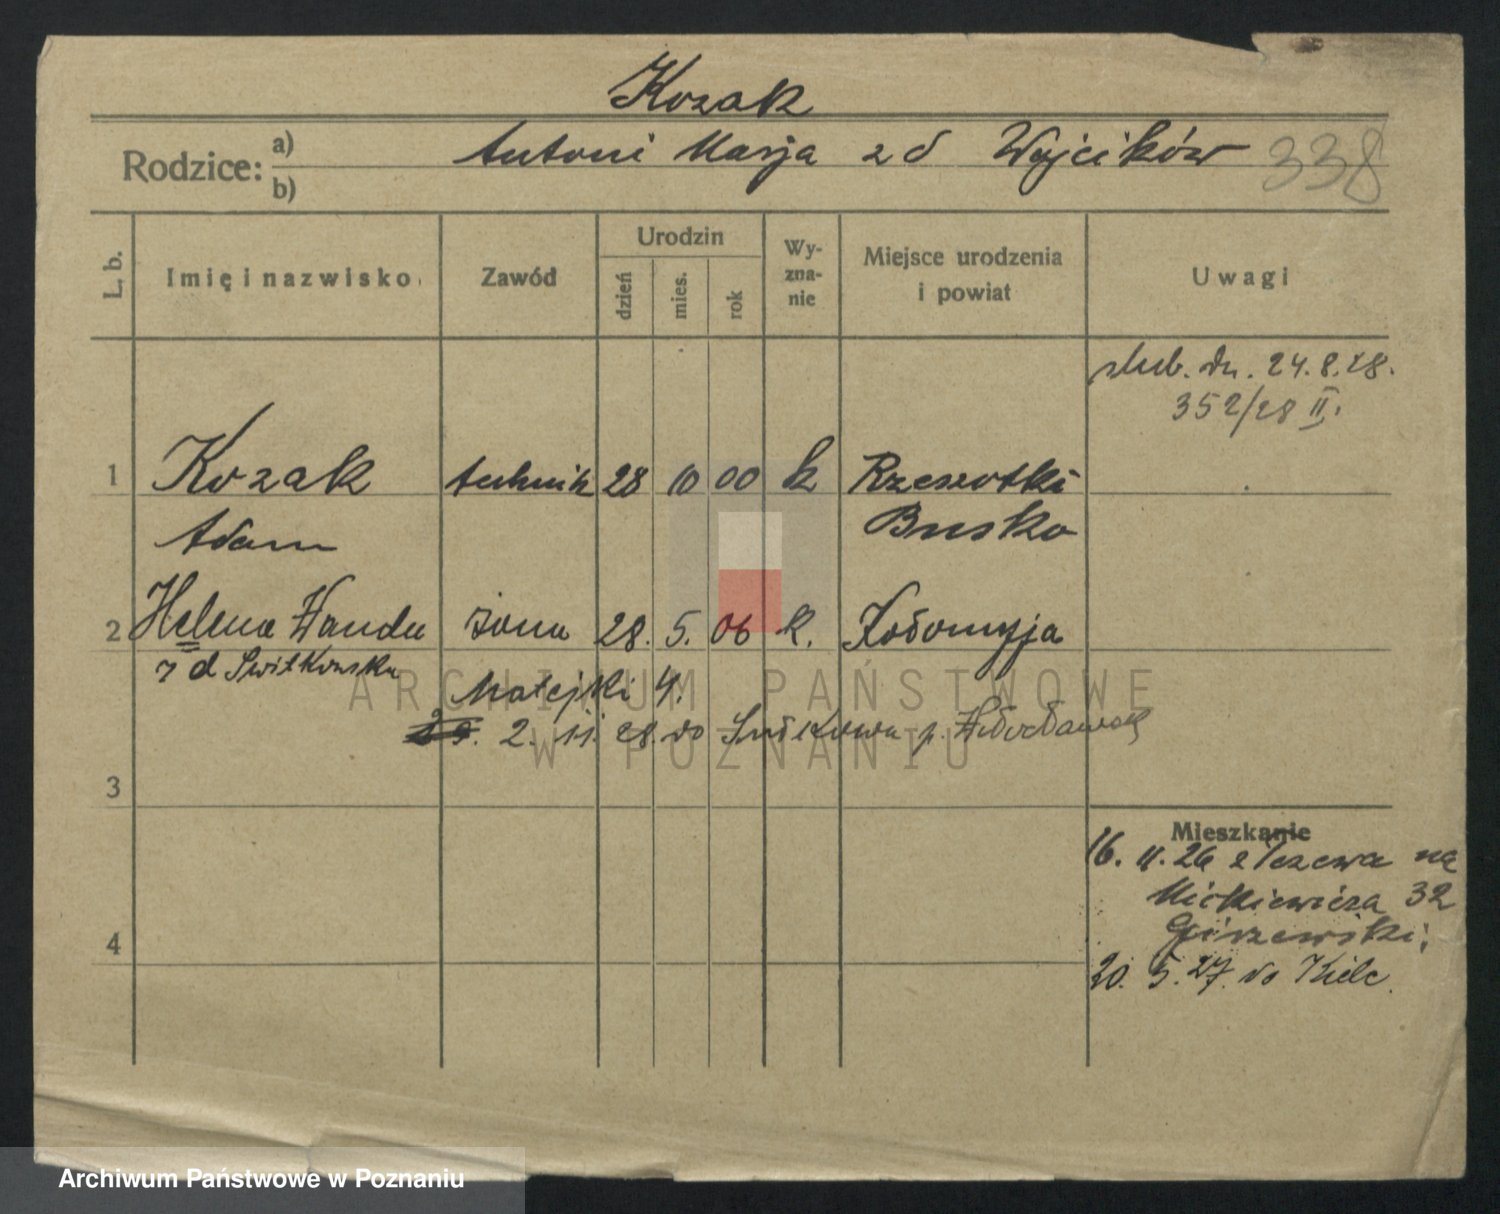 Kozak
Rodzice: a) Antoni Marja z d Wójcików 338
b)
L. b.
Imię i nazwisko
Zawód
Urodzin
dzień
mies.
rok
Wy-
zna-
nie
Miejsce urodzenia
i powiat
Uwagi
ślub. dn. 24.8.28.
352/28 II.
1 Kozak technik 28 10 00 k Rzeszotki
Adam Busko
2 Helena Wanda żona 28. 5. 06 k. Kołomyja
z d Switkowska
Matejki 4.
2. 11. 28. do p. Włocławek
3
Mieszkanie
16. 11. 26 z Tczewa na
Mickiewicza 32
4
20. 5. 27. do Kielc.
ARCHIWUM PAŃSTWOWE
W POZNANIU
Archiwum Państwowe w Poznaniu